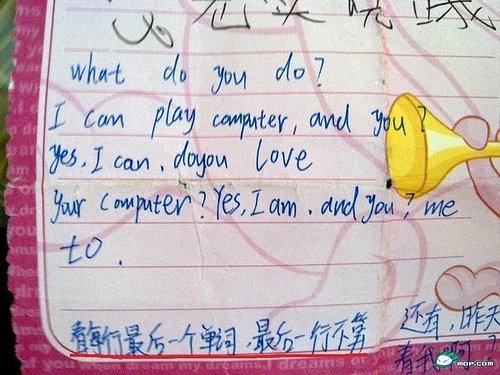 what do you do?
I can play computer, and you?
yes, I can. doyou love
your computer? Yes, I am. and you? me
to.
看每行最后一个单词,最后一行不算
还有,昨天
看我啊?
MOP.COM